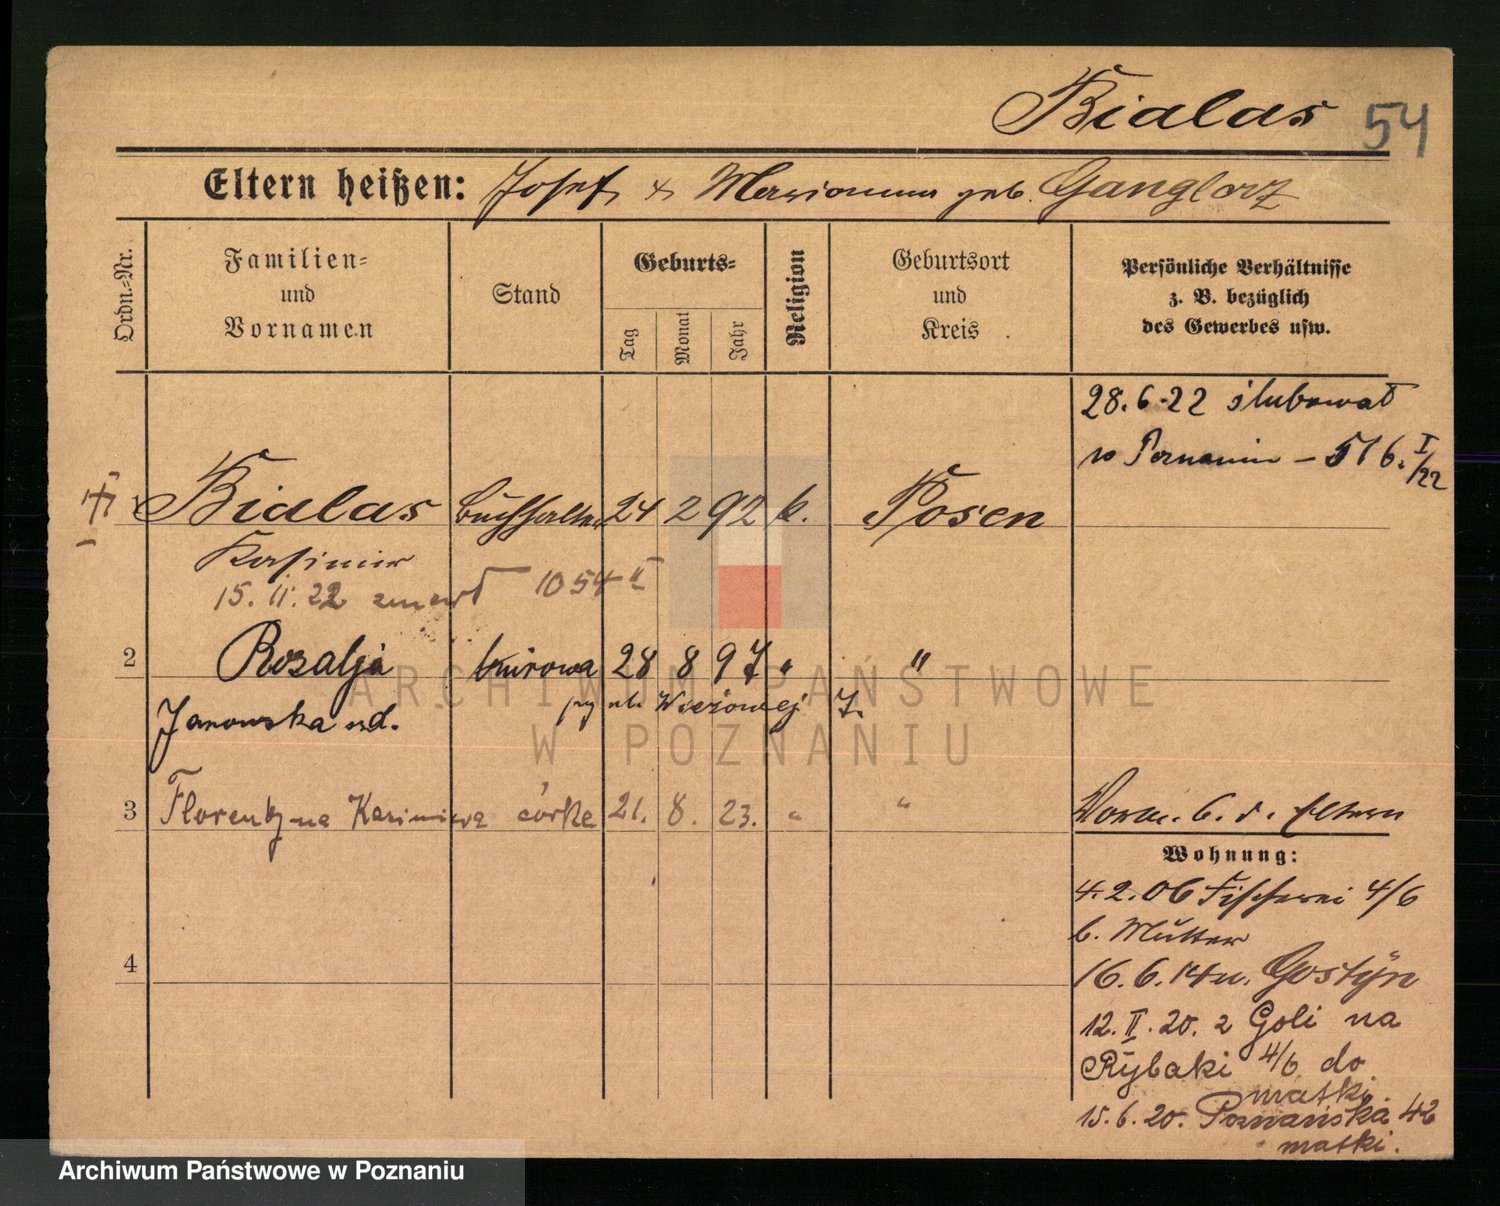 Bialas 54
Eltern heißen: Josef + Marianna geb. Ganglorz
Ordn.=Nr.
Familien=
und
Vornamen
Stand
Geburts=
Tag
Monat
Jahr
Religion
Geburtsort
und
Kreis
Persönliche Verhältnisse
z. B. bezüglich
des Gewerbes usw.
28.6.22 ślubował
w Poznaniu – 576. I/22
Bialas Buchhalter 24 2 92 k. Posen
Kasimir
15.11.22 zmarł 1054 II
2 Rozalja 28 8 97 " "
Janowska wd. przy ul. Wieżowej 7.
3 Florentyna Kazimiera córka 21. 8. 23. " "
Wohn. b. d. Eltern
Wohnung:
4.2.06 Fischerei 4/6
b. Mutter
4
16.6.14 n. Gostÿn
12.II.20. z Goli na
Rybaki 4/6 do
matki
15.6.20. Poznańska 42
matki.
ARCHIWUM PAŃSTWOWE
W POZNANIU
Archiwum Państwowe w Poznaniu